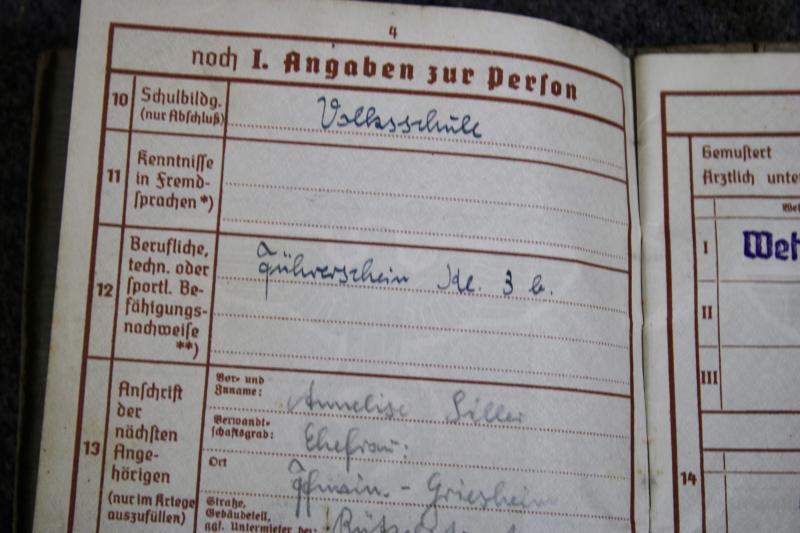 4
noch I. Angaben zur Person
10 Schulbildg. (nur Abschluß) Volksschule
11 Kenntnisse in Fremd-
sprachen *)
12 Berufliche,
techn. oder
sportl. Be-
fähigungs-
nachweise
**)
Führerschein Kl. 3 b.
13 Anschrift
der
nächsten
Ange-
hörigen
(nur im Kriege
auszufüllen)
Vor- und
Zuname: Annelise
Verwandt-
schaftsgrad: Ehefrau:
Ort Ffmain. - Griesheim
Straße,
Gebäudeteil,
ggf. Untermieter bei:
Gemustert
Ärztlich unter
I Weh
II
III
14